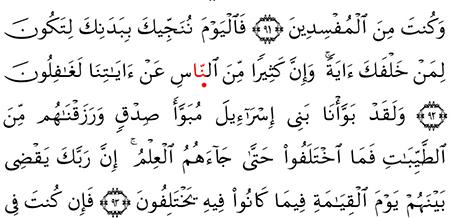 وَكُنتَ مِنَ ٱلْمُفْسِدِينَ ﴿٩١﴾ فَٱلْيَوْمَ نُنَجِّيكَ بِبَدَنِكَ لِتَكُونَ
لِمَنْ خَلْفَكَ ءَايَةً ۚ وَإِنَّ كَثِيرًا مِّنَ ٱلنَّاسِ عَنْ ءَايَـٰتِنَا لَغَـٰفِلُونَ
﴿٩٢﴾ وَلَقَدْ بَوَّأْنَا بَنِىٓ إِسْرَٰٓءِيلَ مُبَوَّأَ صِدْقٍ وَرَزَقْنَـٰهُم مِّنَ
ٱلطَّيِّبَـٰتِ فَمَا ٱخْتَلَفُوا۟ حَتَّىٰ جَآءَهُمُ ٱلْعِلْمُ ۚ إِنَّ رَبَّكَ يَقْضِى
بَيْنَهُمْ يَوْمَ ٱلْقِيَـٰمَةِ فِيمَا كَانُوا۟ فِيهِ يَخْتَلِفُونَ ﴿٩٣﴾ فَإِن كُنتَ فِى